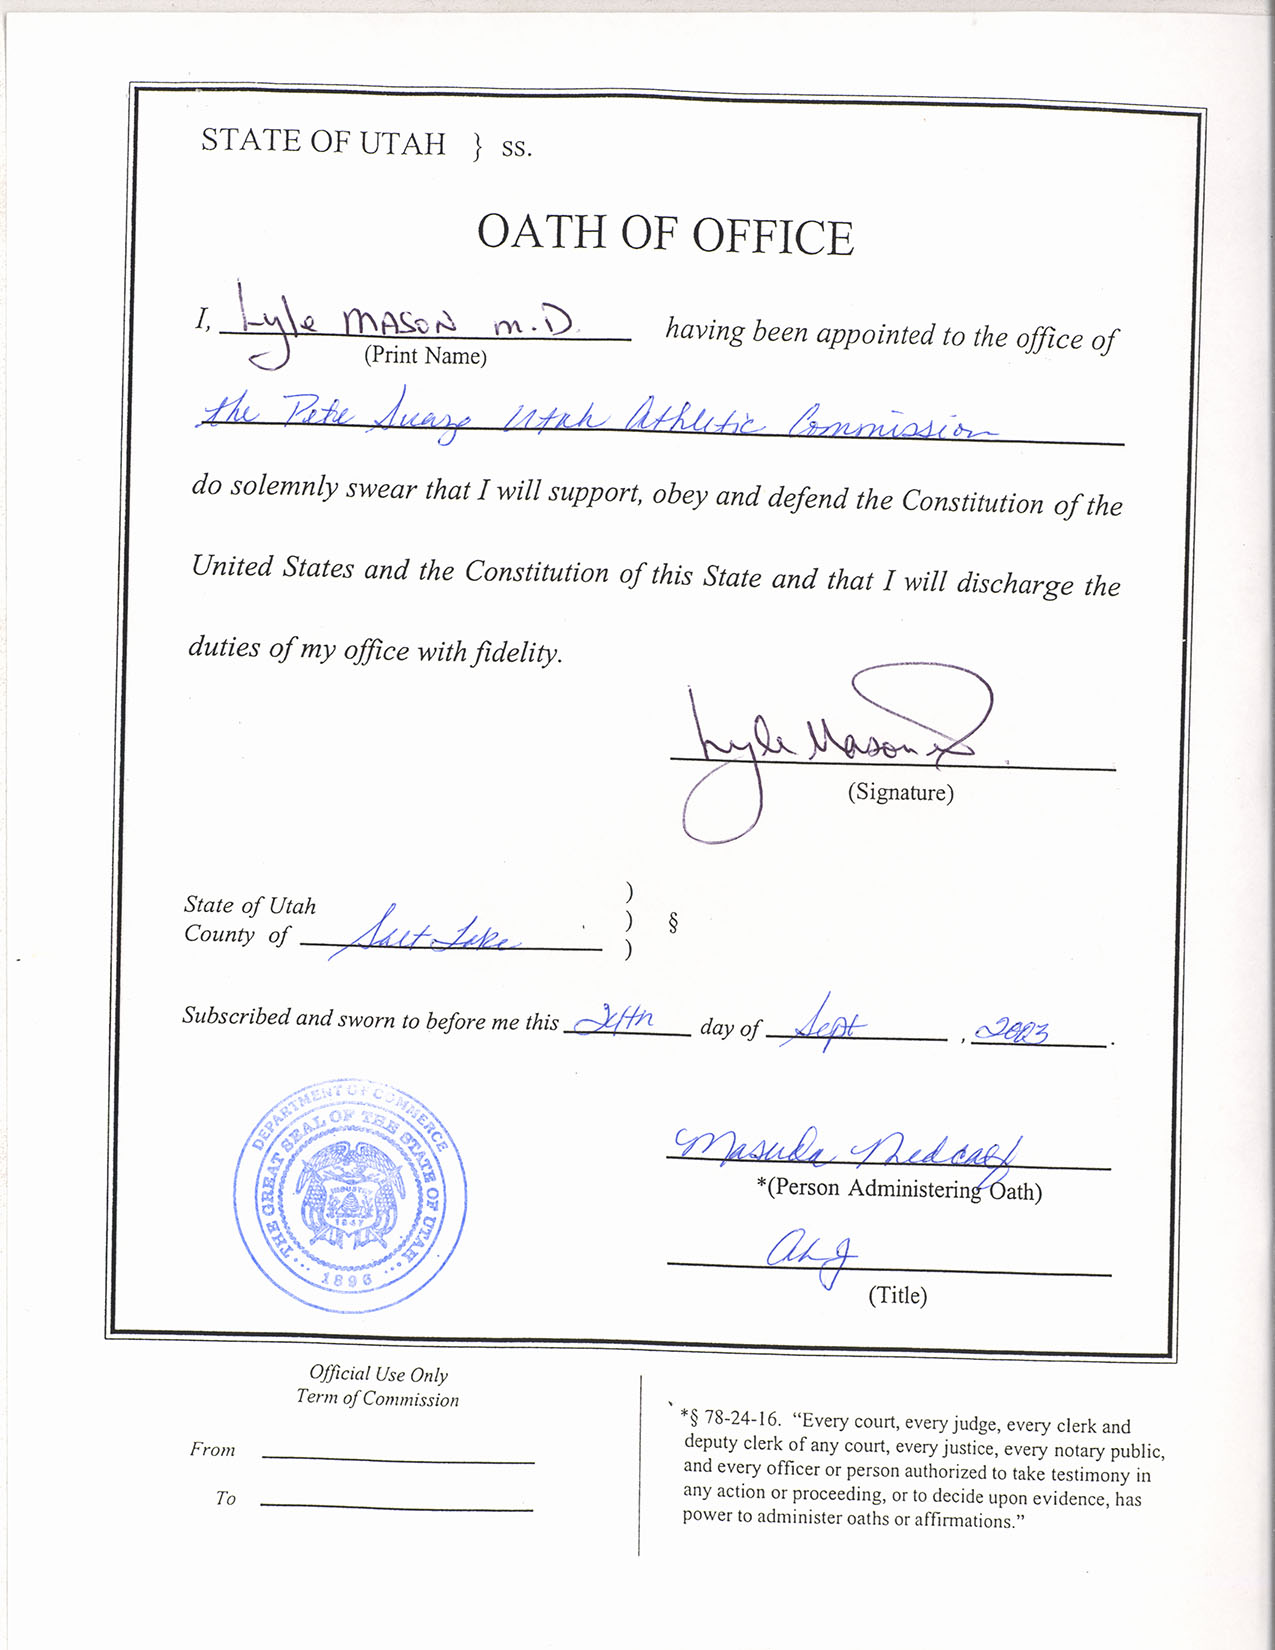 STATE OF UTAH } ss.
OATH OF OFFICE
I, Lyle MASON M.D. having been appointed to the office of
(Print Name)
the Pete Suazo Utah Athletic Commission
do solemnly swear that I will support, obey and defend the Constitution of the
United States and the Constitution of this State and that I will discharge the
duties of my office with fidelity.
Lyle Mason
(Signature)
State of Utah )
County of Salt Lake ) §
)
Subscribed and sworn to before me this day of Sept, 2003.
DEPARTMENT OF COMMERCE
THE GREAT SEAL OF THE STATE OF UTAH
INDUSTRY
1847
1896
Masuda Medcalf
*(Person Administering Oath)
ALJ
(Title)
Official Use Only
Term of Commission
From
To
*§ 78-24-16. “Every court, every judge, every clerk and
deputy clerk of any court, every justice, every notary public,
and every officer or person authorized to take testimony in
any action or proceeding, or to decide upon evidence, has
power to administer oaths or affirmations.”